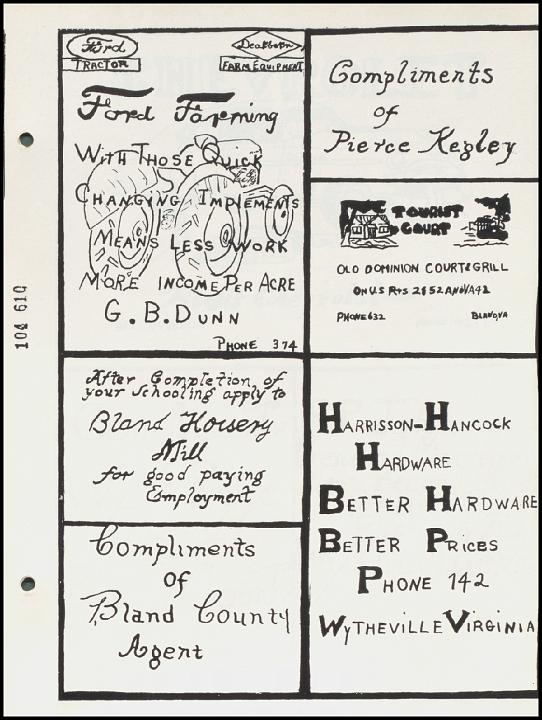 Ford
TRACTOR
Dearborn
FARM EQUIPMENT
Ford Farming
WITH THOSE QUICK
CHANGING IMPLEMENTS
MEANS LESS WORK
MORE INCOME PER ACRE
G. B. DUNN
PHONE 374
After Completion of
your schooling apply to
Bland Hoisery
Mill
for good paying
Employment
Compliments
of
Bland County
Agent
Compliments
of
Pierce Kegley
TOURIST
COURT
OLD DOMINION COURT & GRILL
ON U.S Rts 21 & 52 AND VA 42
PHONE 632 BLAND, VA
HARRISSON-HANCOCK
HARDWARE
BETTER HARDWARE
BETTER PRICES
PHONE 142
WYTHEVILLE VIRGINIA
104 610